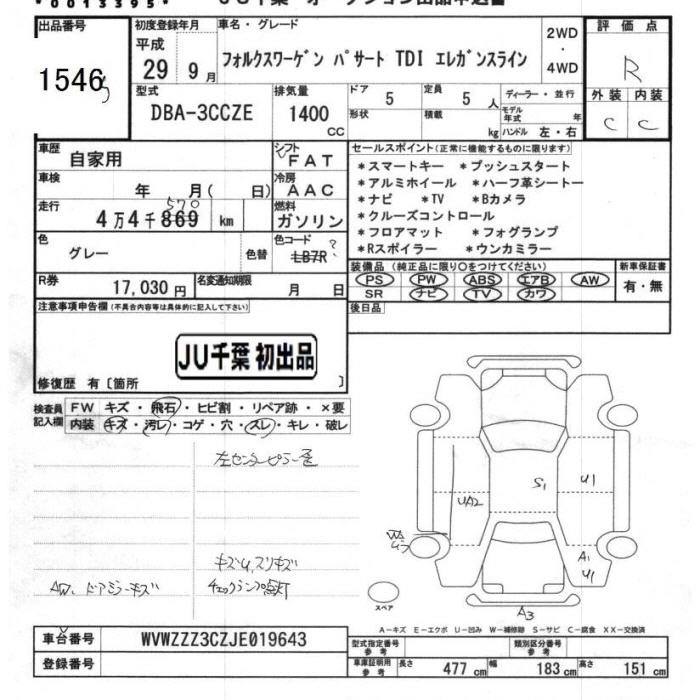 *0013395*
JU千葉 オークション出品申込書
出品番号
1546
初度登録年月
平成
29 9 月
車名・グレード
フォルクスワーゲン パサート TDI エレガンスライン
2WD
・
4WD
評価点
R
型式
DBA-3CCZE
排気量
1400
CC
ドア
5
定員
5 人
ディーラー・並行
形状
積載
kg
モデル年式
年
ハンドル 左・右
外装
内装
C
C
車歴
自家用
シフト
FAT
車検
年 月( 日)
冷房
AAC
走行
570
4万4千869 km
燃料
ガソリン
色
グレー
色替
色コード
LB7R ?
R券
17,030 円
名変通知期限
月 日
セールスポイント(正常に機能するものに限ります)
*スマートキー *プッシュスタート
*アルミホイール *ハーフ革シートー
*ナビ *TV *Bカメラ
*クルーズコントロール
*フロアマット *フォグランプ
*Rスポイラー *ウンカミラー
装備品(純正品に限り○をつけてください)
PS PW ABS エアB AW
SR ナビ TV カワ
新車保証書
有・無
後日品
注意事項申告欄(不具合内容等は具体的に記入して下さい)
JU千葉 初出品
修復歴 有〔箇所 〕
検査員
記入欄
FW キズ・飛石・ヒビ割・リペア跡・×要
内装 キズ・汚レ・コゲ・穴・スレ・キレ・破レ
左センターピラー歪
キズU,スリキズ
AW、ドアミラーキズ
チェックランプ点灯
S1
U1
UA2
A1
U1
A3
スペア
A-キズ E-エクボ U-凹み W-補修跡 S-サビ C-腐食 XX-交換済
車台番号
WVWZZZ3CZJE019643
登録番号
型式指定番号
参考
類別区分番号
参考
車庫証明用
参考
長さ 477 cm
幅 183 cm
高さ 151 cm